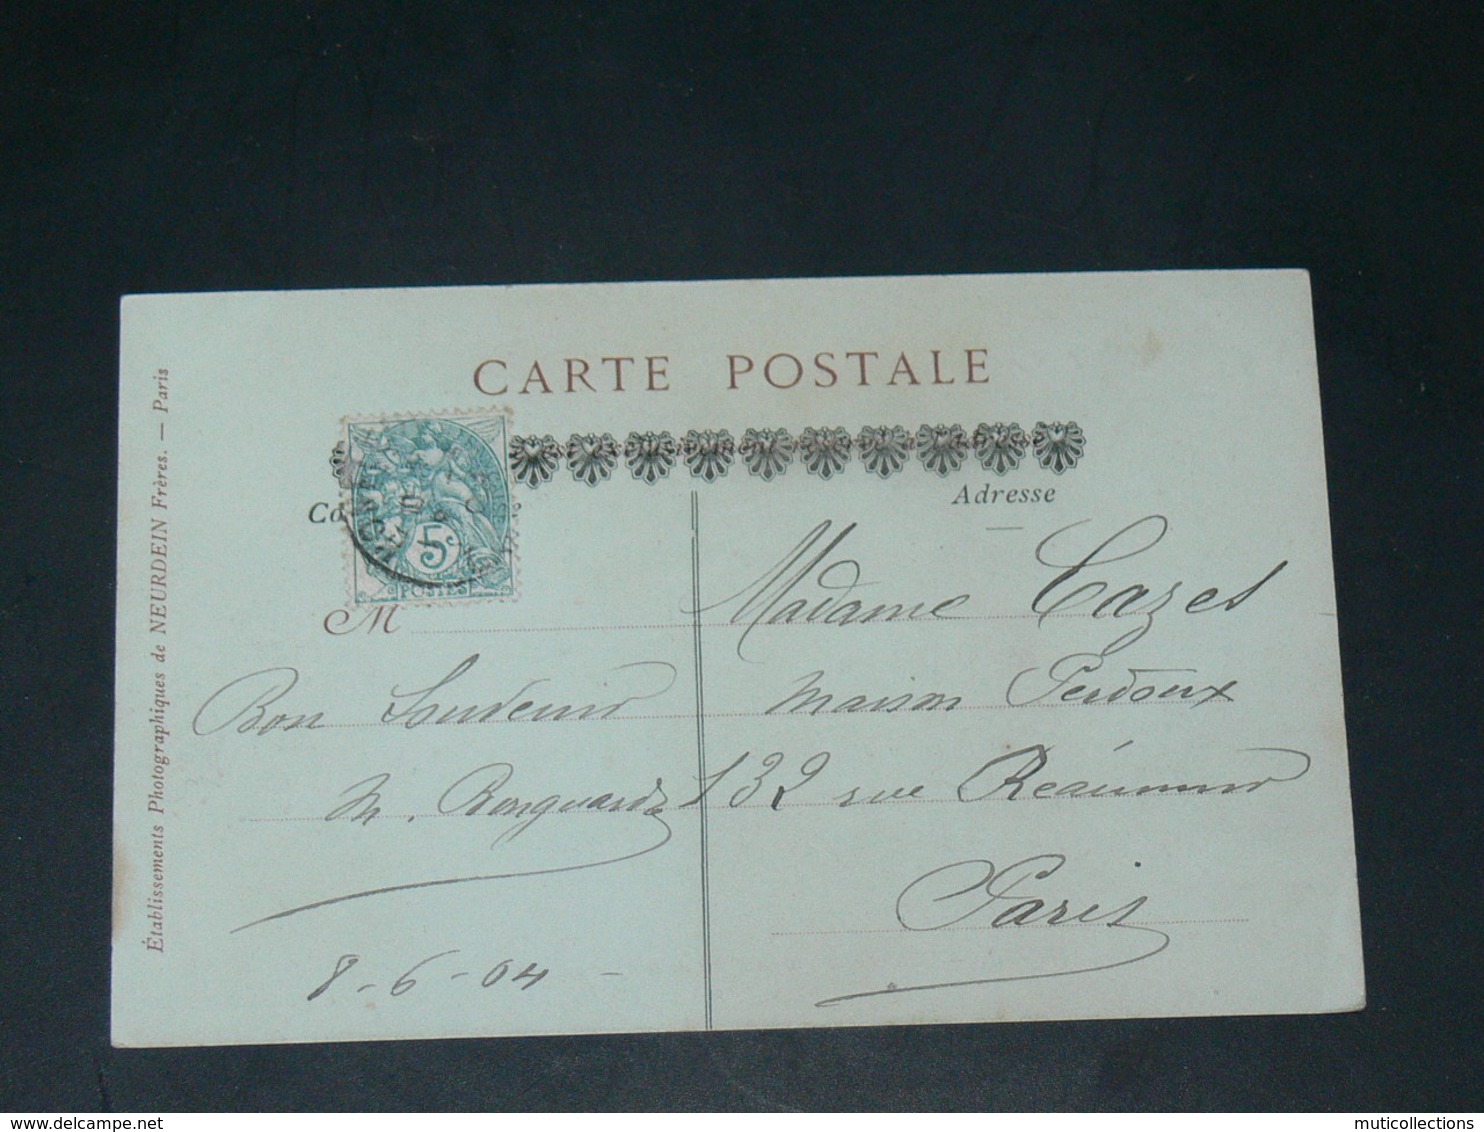 CARTE POSTALE
Adresse
5c
POSTES
M
Madame Cazes
maison Perdoux
132 rue Réaumur
Paris
Bon Souvenir
M.
8-6-04
Établissements Photographiques de NEURDEIN Frères. — Paris
delcampe.net
muticollections